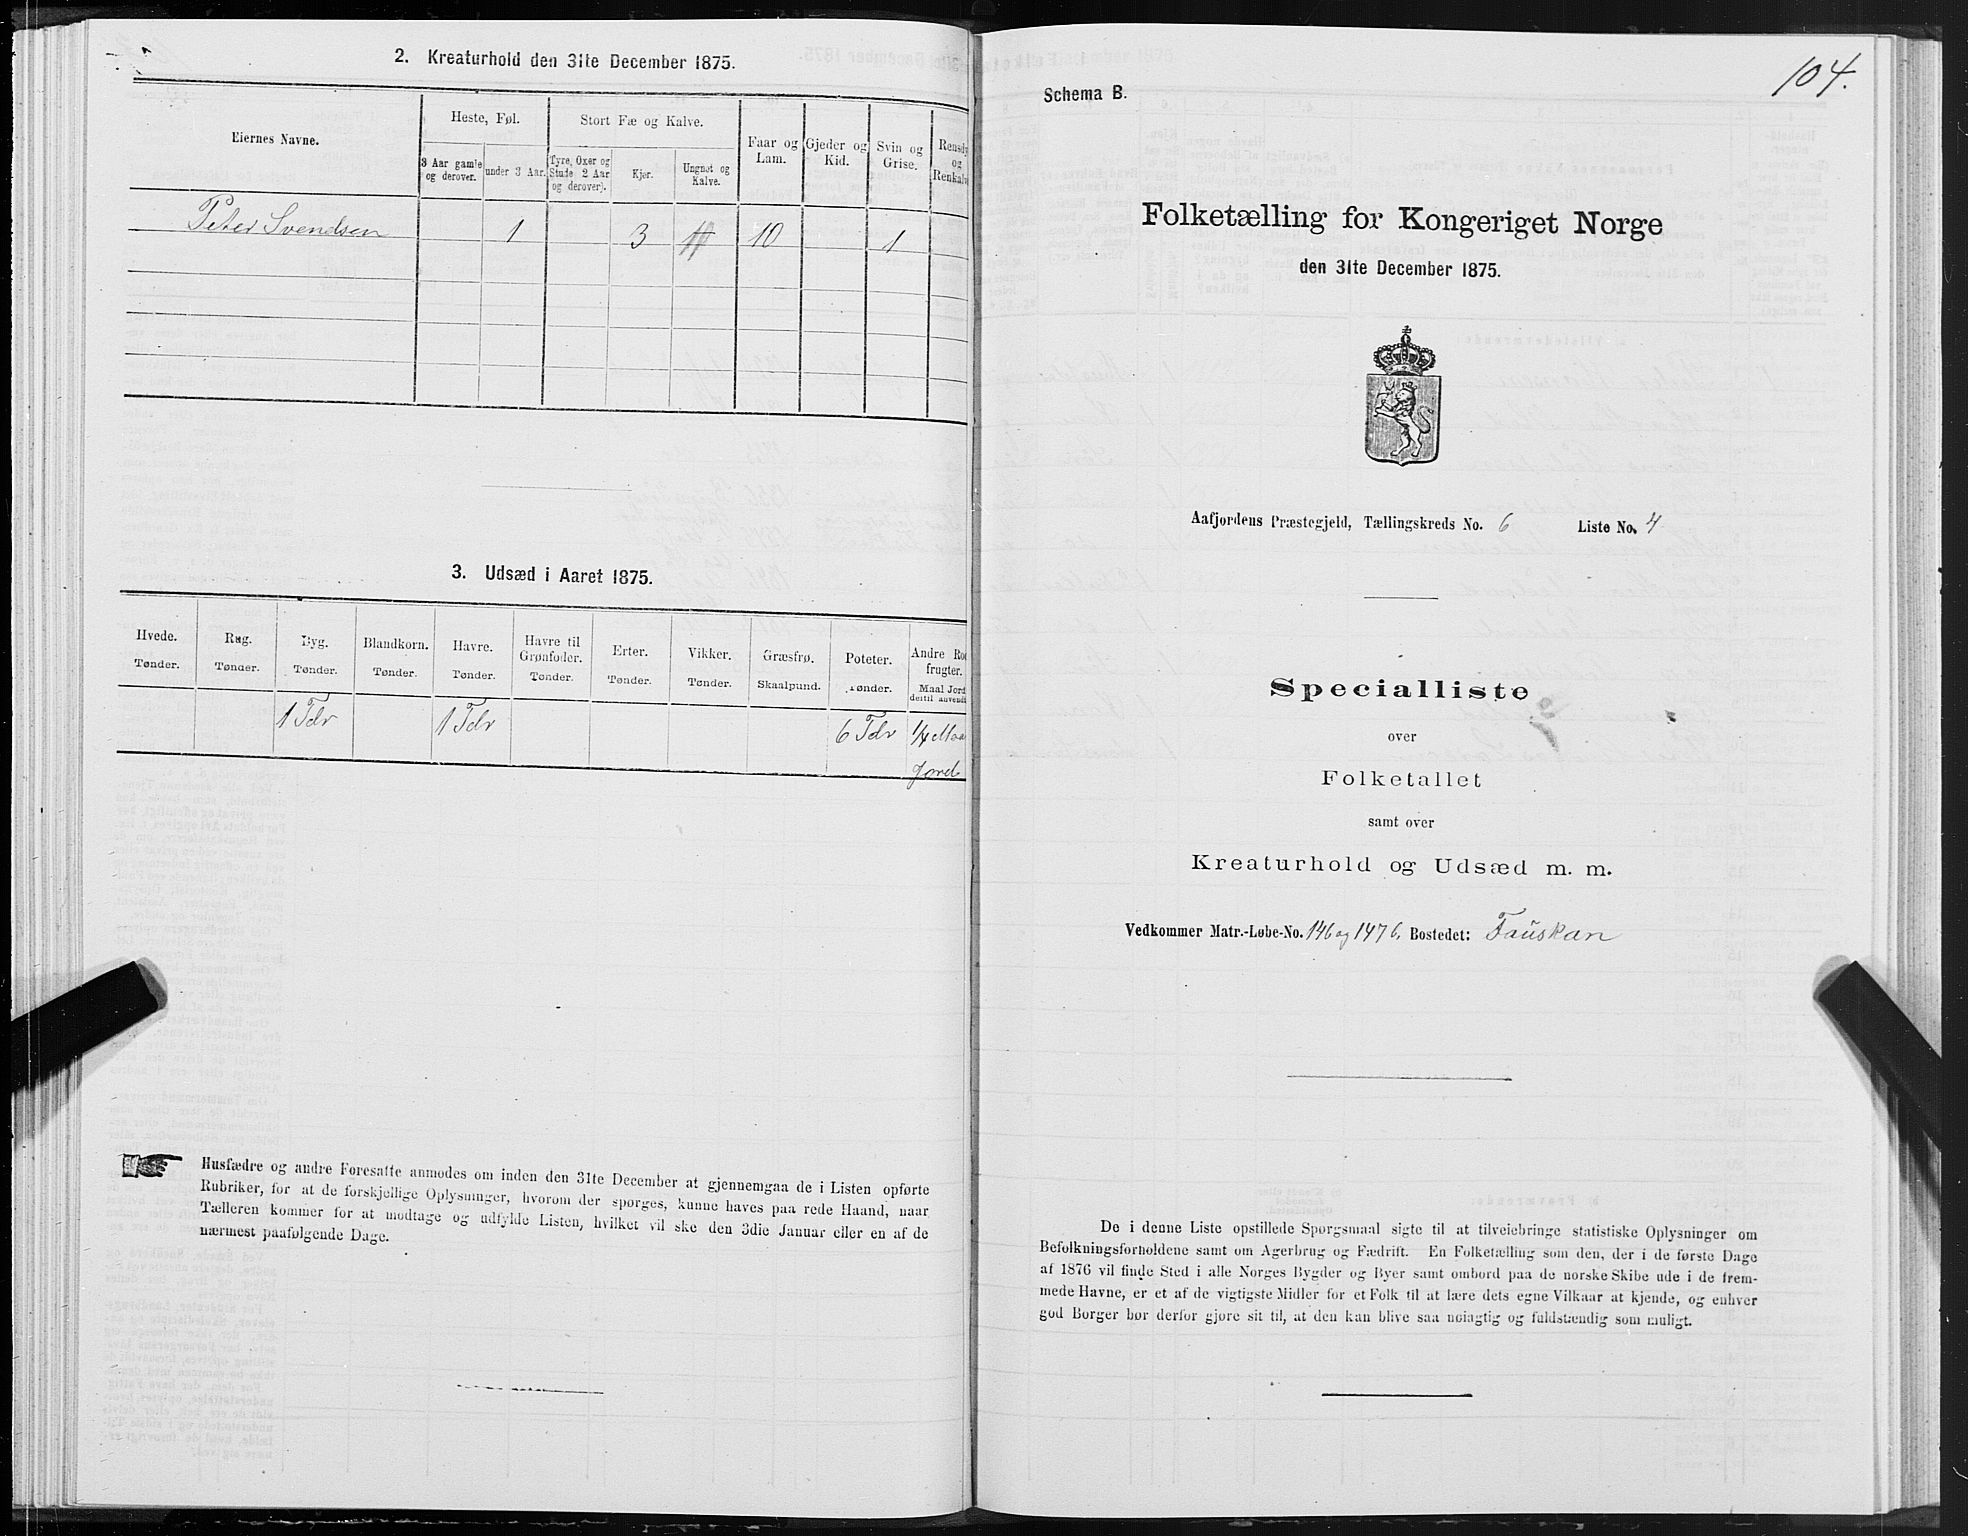 2. Kreaturhold den 31te December 1875.
Eiernes Navne.
Heste, Føl.
Stort Fæ og Kalve.
Faar og
Lam.
Gjeder og
Kid.
Svin og
Grise.
og
3 Aar gamle
og derover.
under 3 Aar.
Tyre, Oxer og
Stude 2 Aar
og derover).
Kjer.
Ungnøt og
Kalve.
Peter Svendsen 1 3 10 1
3. Udsæd i Aaret 1875.
Hvede.
Tønder.
Rug.
Tønder.
Byg.
Tønder.
Blandkorn.
Tønder.
Havre.
Tønder.
Havre til
Grønfoder.
Tønder.
Erter.
Tønder.
Vikker.
Tønder.
Græsfrø.
Skaalpund.
Poteter.
Tønder.
Andre
frugter.
Maal Jord
dertil
1 Tdr 1 Tdr 6 Tdr 1/4
Jord
Husfædre og andre Foresatte anmodes om inden den 31te December at gjennemgaa de i Listen opførte
Rubriker, for at de forskjellige Oplysninger, hvorom der spørges, kunne haves paa rede Haand, naar
Tælleren kommer for at modtage og udfylde Listen, hvilket vil ske den 3die Januar eller en af de
nærmest paafølgende Dage.
104.
Schema B.
Folketælling for Kongeriget Norge
den 31te December 1875.
Aafjordens Præstegjeld, Tællingskreds No. 6 Liste No. 4
Specialliste
over
Folketallet
samt over
Kreaturhold og Udsæd m. m.
Vedkommer Matr.-Løbe-No. 146 og 147 6. Bostedet: Fauskan
De i denne Liste opstillede Spørgsmaal sigte til at tilveiebringe statistiske Oplysninger om
Befolkningsforholdene samt om Agerbrug og Fædrift. En Folketælling som den, der i de første Dage
af 1876 vil finde Sted i alle Norges Bygder og Byer samt ombord paa de norske Skibe ude i de frem-
mede Havne, er et af de vigtigste Midler for et Folk til at lære dets egne Vilkaar at kjende, og enhver
god Borger bør derfor gjøre sit til, at den kan blive saa nøiagtig og fuldstændig som muligt.